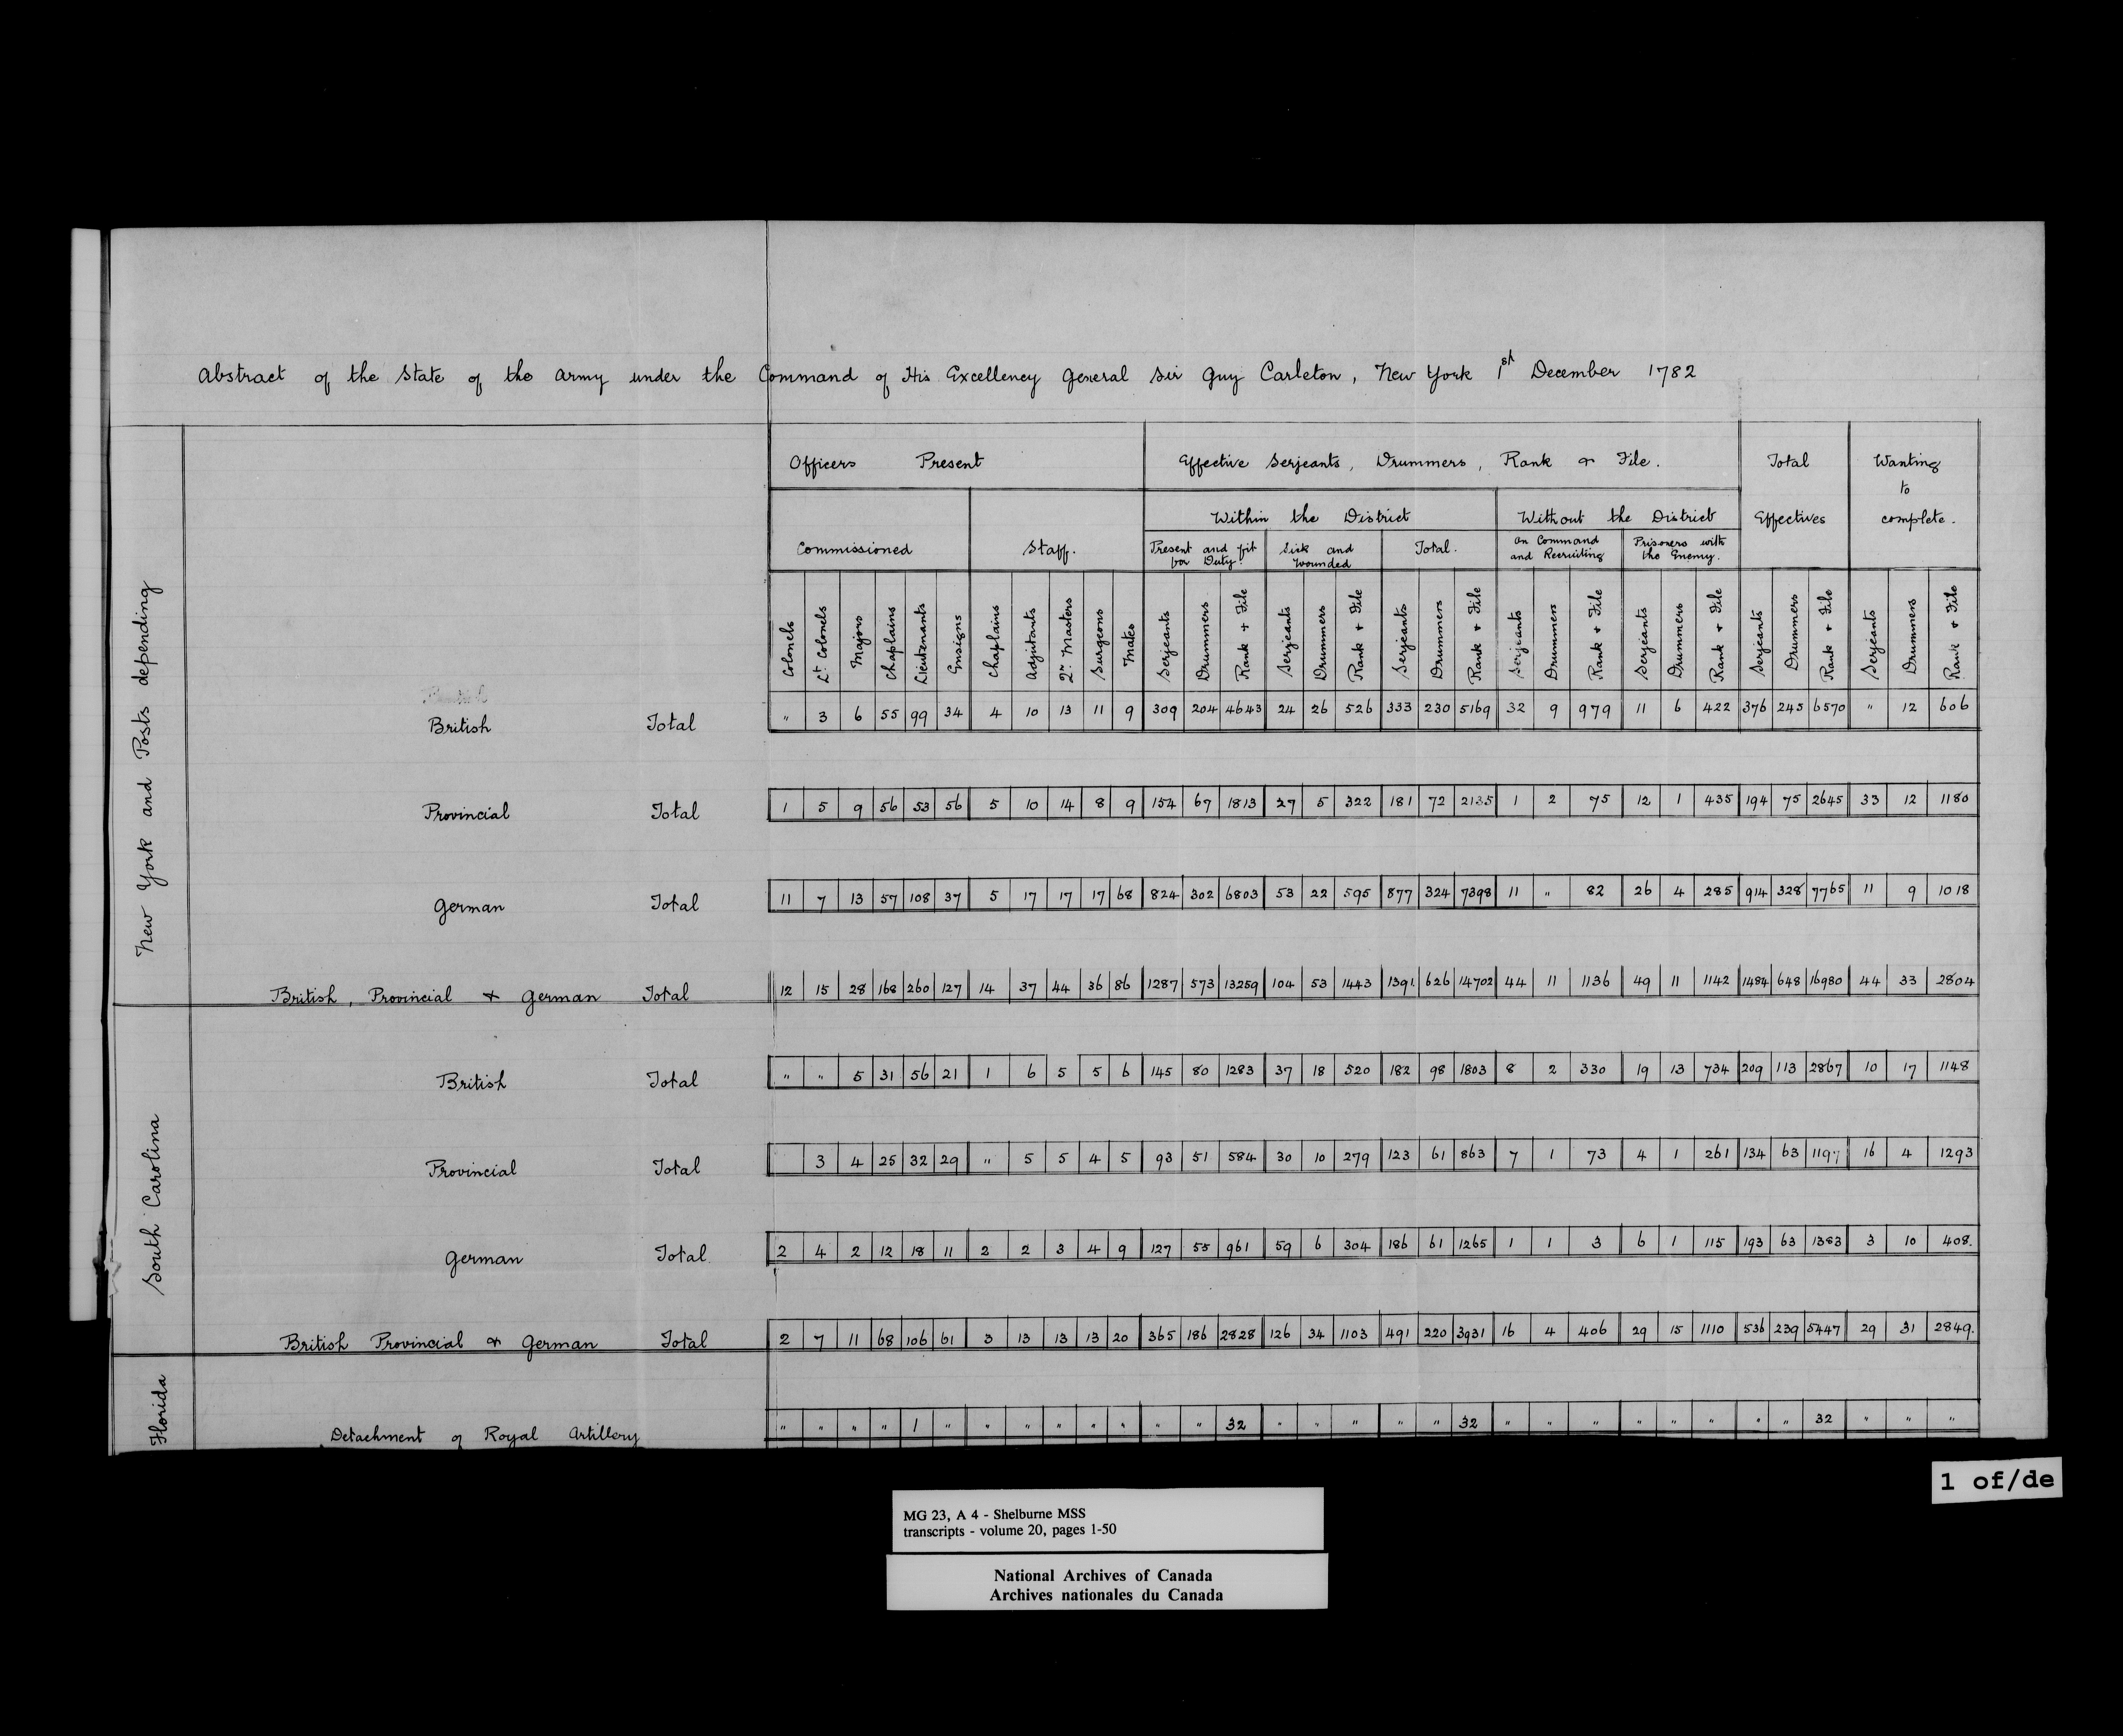 Abstract of the State of the Army under the Command of His Excellency General Sir Guy Carleton, New York 1st December 1782
Officers Present
Effective Serjeants, Drummers, Rank & File.
Total Effectives
Wanting to complete.
Commissioned
Staff.
Within the District
Without the District
Present and fit for Duty.
Sick and Wounded
Total.
On Command and Recruiting
Prisoners with the Enemy.
Colonels Lt. Colonels Majors Chaplains Lieutenants Ensigns Chaplains Adjutants Qr. Masters Surgeons Mates Serjeants Drummers Rank + File Serjeants Drummers Rank + File Serjeants Drummers Rank + File Serjeants Drummers Rank + File Serjeants Drummers Rank + File Serjeants Drummers Rank + File Serjeants Drummers Rank + File
New York and Posts depending
British Total " 3 6 55 99 34 4 10 13 11 9 309 204 4643 24 26 526 333 230 5169 32 9 979 11 6 422 376 245 6570 " 12 606
Provincial Total 1 5 9 56 53 56 5 10 14 8 9 154 67 1813 27 5 322 181 72 2135 1 2 75 12 1 435 194 75 2645 33 12 1180
German Total 11 7 13 57 108 37 5 17 17 17 68 824 302 6803 53 22 595 877 324 7398 11 " 82 26 4 285 914 328 7765 11 9 1018
British, Provincial + German Total 12 15 28 168 260 127 14 37 44 36 86 1287 573 13259 104 53 1443 1391 626 14702 44 11 1136 49 11 1142 1484 648 16980 44 33 2804
South Carolina
British Total " " 5 31 56 21 1 6 5 5 6 145 80 1283 37 18 520 182 98 1803 8 2 330 19 13 734 209 113 2867 10 17 1148
Provincial Total 3 4 25 32 29 " 5 5 4 5 93 51 584 30 10 279 123 61 863 7 1 73 4 1 261 134 63 1197 16 4 1293
German Total 2 4 2 12 18 11 2 2 3 4 9 127 55 961 59 6 304 186 61 1265 1 1 3 6 1 115 193 63 1383 3 10 408.
British Provincial & German Total 2 7 11 68 106 61 3 13 13 13 20 365 186 2828 126 34 1103 491 220 3931 16 4 406 29 15 1110 536 239 5447 29 31 2849.
Florida
Detachment of Royal Artillery " " " " 1 " " " " " " " " 32 " " " " " 32 " " " " " " " " 32 " " "
1 of/de
MG 23, A 4 - Shelburne MSS
transcripts - volume 20, pages 1-50
National Archives of Canada
Archives nationales du Canada